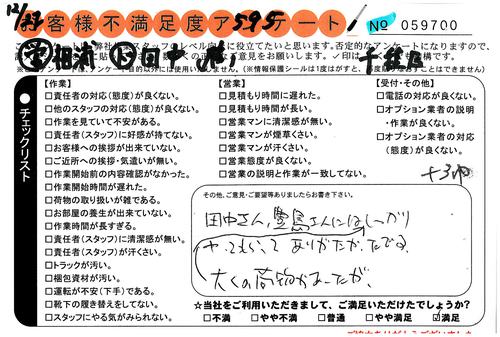 12/27
お客様不満足度アンケート
№ 059700
✓印は
【作業】
□責任者の対応(態度)が良くない。
□他のスタッフの対応(態度)が良くない。
□作業を見ていて不安がある。
□責任者(スタッフ)に好感が持てない。
□お客様への挨拶が出来ていない。
□ご近所への挨拶・気遣いが無い。
□作業開始前の内容確認がなかった。
□作業開始時間が遅れた。
□荷物の取り扱いが雑である。
□お部屋の養生が出来ていない。
□作業時間が長すぎる。
□責任者(スタッフ)に清潔感が無い。
□責任者(スタッフ)が汗くさい。
□トラックが汚い。
□梱包資材が汚い。
□運転が不安(下手)である。
□靴下の履き替えをしてない。
□スタッフにやる気がみられない。
【営業】
□見積もり時間に遅れた。
□見積もり時間が長い。
□営業マンに清潔感が無い。
□営業マンが煙草くさい。
□営業マンが汗くさい。
□営業態度が良くない。
□営業の説明と作業が一致してない。
【受付・その他】
□電話の対応が良くない。
□オプション業者の説明
・作業が良くない。
□オプション業者の対応
(態度)が良くない。
● チェックリスト
その他、ご意見・ご要望等ありましたらお書き下さい。
田中さん、豊島さんにはしっかり
やってもらって ありがたかったです。
大くの荷物があったが、
★当社をご利用いただきまして、ご満足いただけたでしょうか？
□不満 □やや不満 □普通 □やや満足 ☑満足